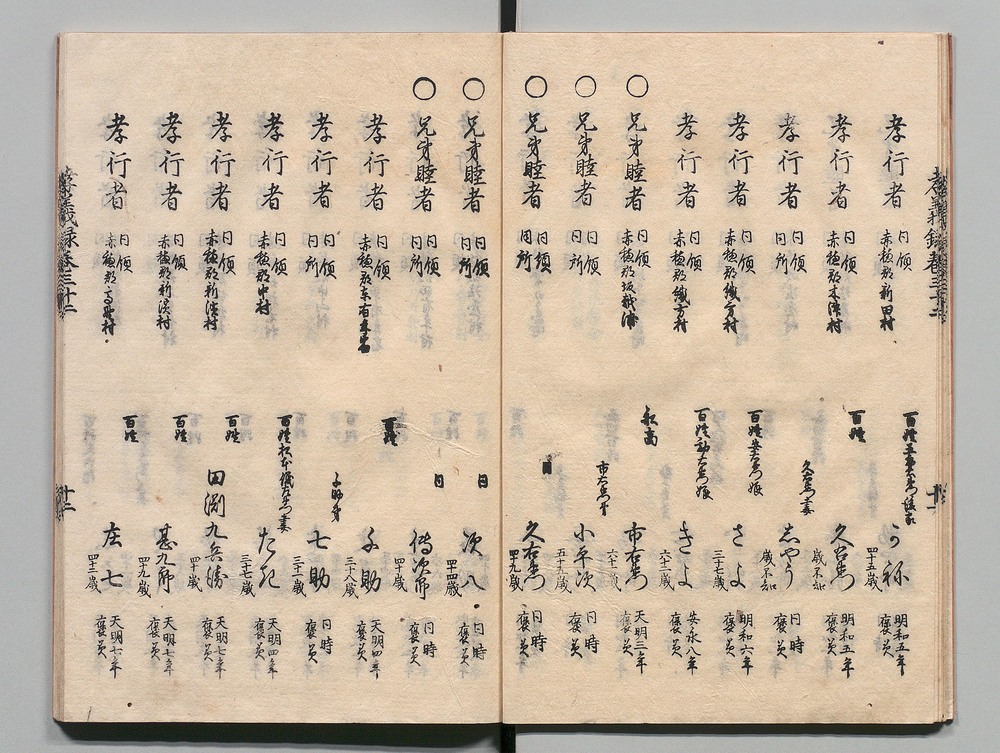 孝行者 同領 赤穂郡新田村 百姓 明和五年 褒美
四十五歳
孝行者 同領 赤穂郡木津村 百姓 久右衛門 歳不知 明和五年 褒美
孝行者 同領 同所 久右衛門妻 志やう 歳不知 同時 褒美
孝行者 同領 赤穂郡 村 百姓 娘 さよ 三十七歳 明和六年 褒美
孝行者 同領 赤穂郡 村 百姓 娘 きよ 六十二歳 安永八年 褒美
○ 兄弟睦者 同領 赤穂郡坂越浦 市右衛門 天明三年 褒美
○ 兄弟睦者 同領 同所 市右衛門弟 小平次 五十九歳 同時 褒美
○ 兄弟睦者 同領 同所 同 久右衛門 四十九歳 同時 褒美
孝義録巻三十二
○ 兄弟睦者 同領 同所 同 次八 四十四歳 同時 褒美
○ 兄弟睦者 同領 同所 同 傳次郎 四十歳 同時 褒美
孝行者 同領 赤穂郡東有年 百姓 千助 三十八歳 天明四年 褒美
孝行者 同領 同所 千助弟 七助 三十一歳 同時 褒美
孝行者 同領 赤穂郡中村 百姓 妻 たき 三十七歳 天明四年 褒美
孝行者 同領 赤穂郡新濱村 百姓 田渕九兵衛 四十歳 天明七年 褒美
孝行者 同領 赤穂郡新濱村 百姓 甚九郎 四十九歳 天明七年 褒美
孝行者 同領 赤穂郡 村 百姓 庄七 四十二歳 天明七年 褒美
孝義録巻三十二
十二